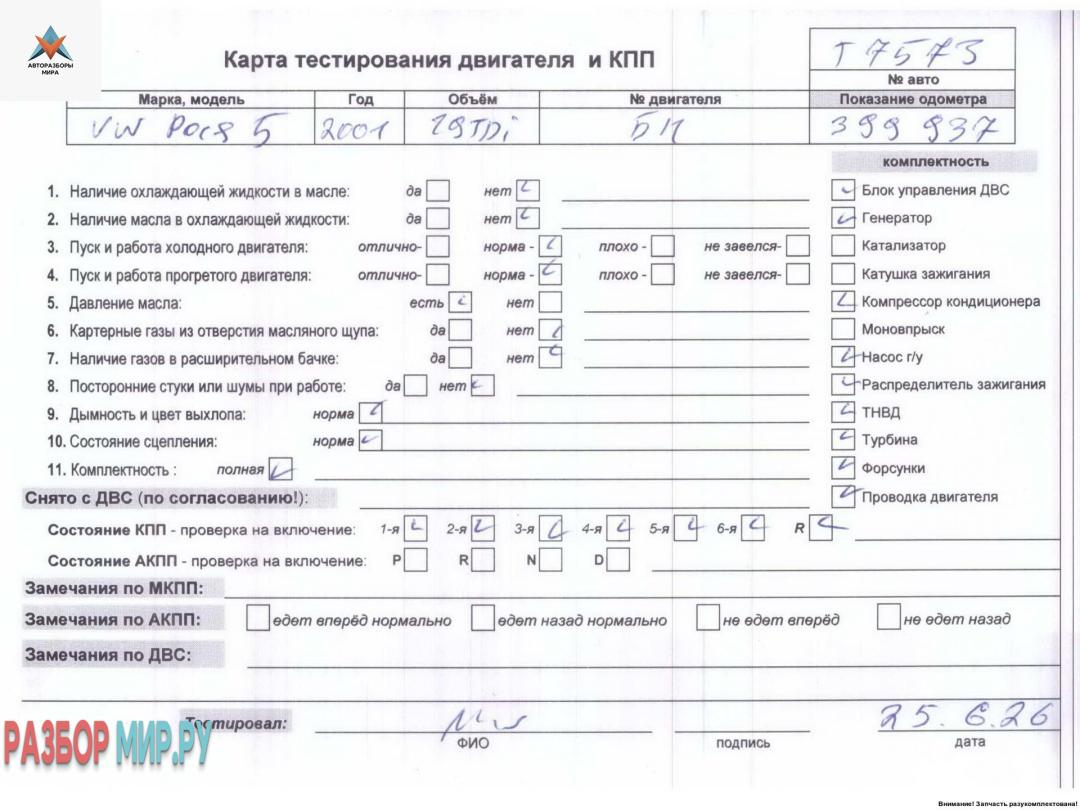 АВТОРАЗБОРЫ
МИРА
Карта тестирования двигателя и КПП
T 7573
№ авто
Марка, модель Год Объём № двигателя Показание одометра
VW 5 2001 1.9TDi 399 937
комплектность
1. Наличие охлаждающей жидкости в масле: да нет Блок управления ДВС
2. Наличие масла в охлаждающей жидкости: да нет Генератор
3. Пуск и работа холодного двигателя: отлично- норма - плохо - не завелся- Катализатор
4. Пуск и работа прогретого двигателя: отлично- норма - плохо - не завелся- Катушка зажигания
5. Давление масла: есть нет Компрессор кондиционера
6. Картерные газы из отверстия масляного щупа: да нет Моновпрыск
7. Наличие газов в расширительном бачке: да нет Насос г/у
8. Посторонние стуки или шумы при работе: да нет Распределитель зажигания
9. Дымность и цвет выхлопа: норма ТНВД
10. Состояние сцепления: норма Турбина
11. Комплектность : полная Форсунки
Снято с ДВС (по согласованию!): Проводка двигателя
Состояние КПП - проверка на включение: 1-я 2-я 3-я 4-я 5-я 6-я R
Состояние АКПП - проверка на включение: P R N D
Замечания по МКПП:
Замечания по АКПП: едет вперёд нормально едет назад нормально не едет вперёд не едет назад
Замечания по ДВС:
Тестировал: 25.6.26
ФИО подпись дата
РАЗБОР МИР.РУ
Внимание! Запчасть разукомплектована!